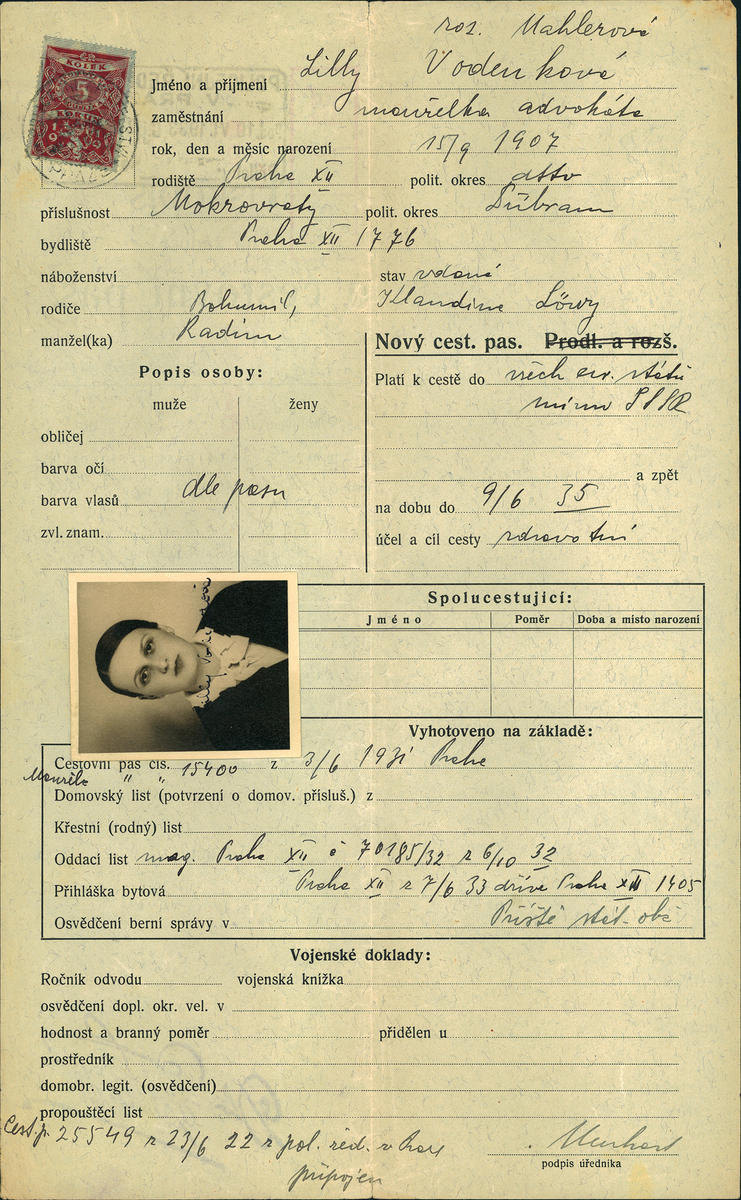 roz. Mahlerová
KOLEK
5
KORUN
Jméno a příjmení Lilly Vodenková
zaměstnání manželka advokáta
rok, den a měsíc narození 15/9 1907
rodiště Praha XII polit. okres dtto
příslušnost Mokrovraty polit. okres Příbram
bydliště Praha XII 1776
náboženství stav vdaná
rodiče Bohumil, Klandina Löwy
manžel(ka) Radim
Nový cest. pas. Prodl. a rozš.
Popis osoby:
Platí k cestě do všech evr. států
muže ženy
mimo SSSR
obličej
barva očí
a zpět
barva vlasů dle pasu
na dobu do 9/6 35
zvl. znam.
účel a cíl cesty zdravotní
Spolucestující:
Jméno Poměr Doba a místo narození
Vyhotoveno na základě:
Cestovní pas čís. 15400 z 3/6 1931 Praha
" "
Domovský list (potvrzení o domov. přísluš.) z
Křestní (rodný) list
Oddací list mag. Praha XII č 70185/32 z 6/10 32
Přihláška bytová Praha XII z 7/6 33 dříve Praha XII 1405
Osvědčení berní správy v Příště stát. obč
Vojenské doklady:
Ročník odvodu vojenská knížka
osvědčení dopl. okr. vel. v
hodnost a branný poměr přidělen u
prostředník
domobr. legit. (osvědčení)
propouštěcí list
Cest. p. 25549 z 23/6 22 z pol. řed. v Praze
připojen
podpis úředníka